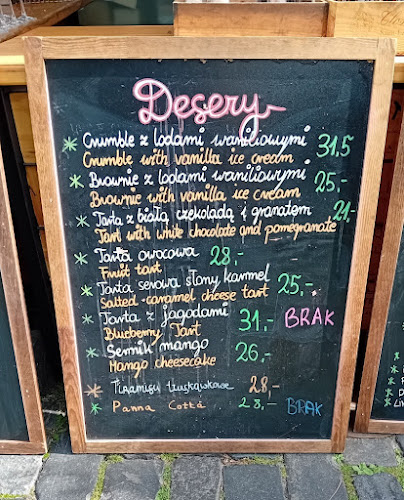 Desery
Crumble z lodami waniliowymi 31,5
Crumble with vanilla ice cream
Brownie z lodami waniliowymi 25,-
Brownie with vanilla ice cream
Tarta z białą czekoladą i granatem 21,-
Tart with white chocolate and pomegranate
Tarta owocowa 28,-
Fruit tart
Tarta serowa słony karmel 25,-
Salted-caramel cheese tart
Tarta z jagodami 31,- BRAK
Blueberry Tart
Sernik mango 26,-
Mango cheesecake
Tiramisu 28,-
Panna Cottá 28,- BRAK